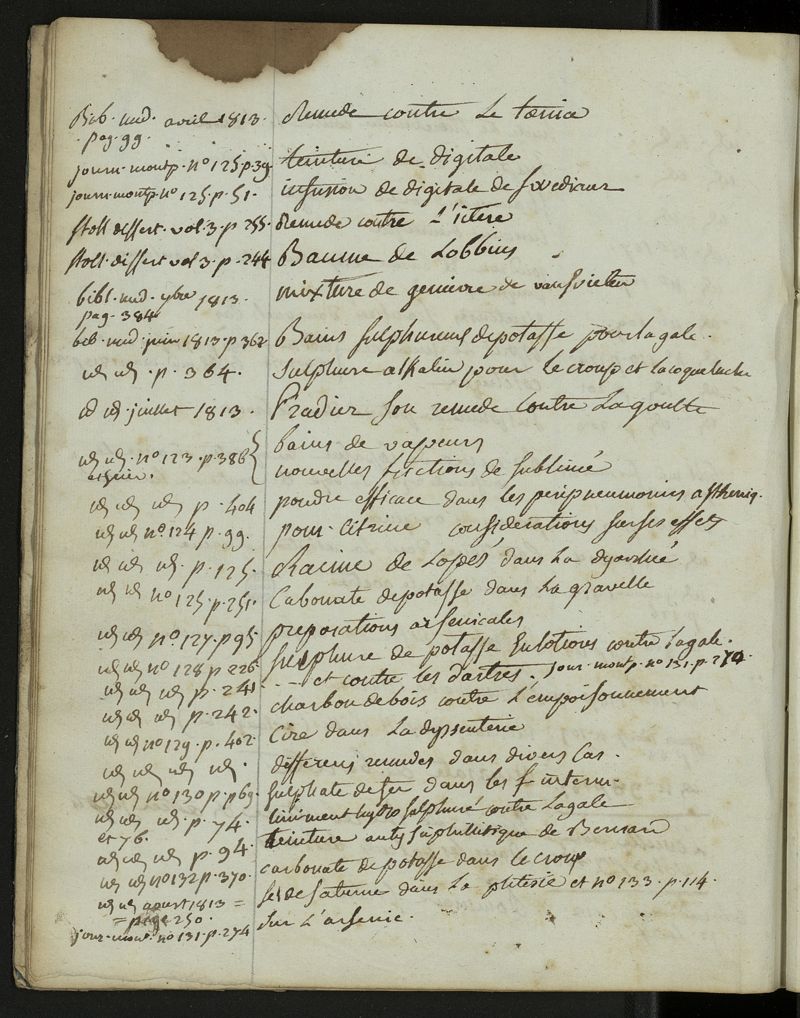 Bib. med. avril 1813. Remede contre Le tœnia
pag. 99.
journ. montp. n° 125 p. 39 teinture de digitale
journ. montp. n° 125. p. 51. infusion de digitale de
stoll dissert. vol. 3. p 255. Remede contre L'ictere
stoll. dissert vol 3. p. 244 Baume de Lobbius
bibl. med. ybre 1813. mixture de genievre de vansvieten
pag. 384
bib. med juin 1813. p 362 Bains sulphureux de potasse pour la gale.
id id. p. 364. sulphure alkalin pour le croup et la coqueluche
id id juillet 1813. Pradier son remede contre La goutte
bains de vapeurs
id id. n° 123. p. 386
nouvelles frictions de sublimé
id id id p. 404 poudre efficace dans les peripneumonies astheniq.
id id n° 124 p. 99. pom. Citrine considerations sur ses effets
id id id. p. 125. Racine de Lopès, dans La dyarrhé
id id n° 125. p. 251. Carbonate de potasse dans La gravelle
id id n° 127. p 95 preparations arsenicales
id id n° 128 p 226 sulphure de potasse En lotions contre la gale.
et contre les dartres. jour. montp. n° 131. p. 274
id id id p. 241 charbon de bois contre L'empoisonnement
id id id p. 242. Cire dans La dyssenterie
id id n° 129. p. 402. differens remedes dans divers Cas.
id id id id. sulphate de fer dans les f interm.
id id n° 130 p. p 69. liniment hydro sulphuré contre La gale
id id id. p. 74. teinture anty siphillitique de Besnard
et 76.
id id id p. 94 carbonate de potasse dans le croup
id id n° 132 p. 370. sel de saturne dans La phtesie et n° 133. p. 114.
id id aoust 1813 = sur L'arsenic.
= page 250.
jour. mont. n° 131. p. 274